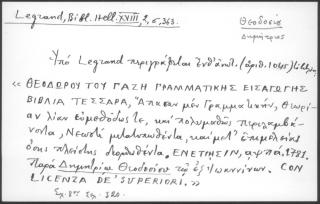 Legrand, Bibl. Hell. XVIII, 2, σ. 363.
Θεοδοσίου
Δημήτριος
Ὑπὸ Legrand περιγράφεται (ἀριθ. 1045)
« ΘΕΟΔΩΡΟΥ ΤΟΥ ΓΑΖΗ ΓΡΑΜΜΑΤΙΚΗΣ ΕΙΣΑΓΩΓΗΣ
ΒΙΒΛΙΑ ΤΕΣΣΑΡΑ, Ἅπασαν μὲν Γραμματικὴν, Θεωρί-
αν λίαν εὐμεθόδως τε, καὶ πολυμαθῶς περιλαμβά-
νοντα, Νεωστὶ μετατυπωθέντα, καὶ μετ' ἐπιμελείας
ὅτι πλείστης διορθωθέντα. ΕΝΕΤΗΣΙΝ, αψπα. 1781.
Παρὰ Δημητρίῳ Θεοδοσίου τῷ ἐξ Ἰωαννίνων. CON
LICENZA DE' SUPERIORI. »